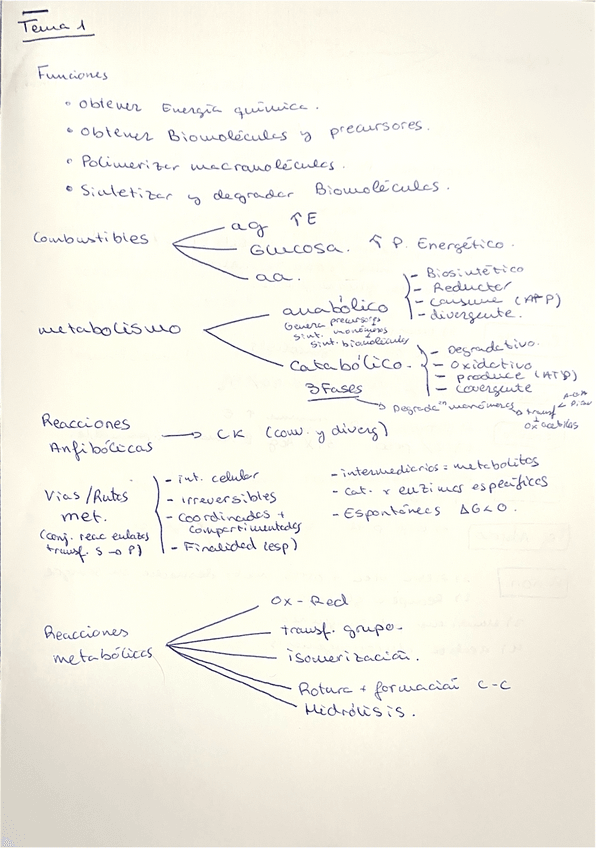 Tema 1
Funciones
• Obtener Energía química.
• Obtener Biomoléculas y precursores.
• Polimerizar macromoléculas.
• Sintetizar y degradar Biomoléculas.
Combustibles
ag ↑E
Glucosa. ↑ P. Energético.
aa.
metabolismo
anabólico
Genera precursores
sint. monómeros
sint. biomoléculas
- Biosintético
- Reductor
- Consume (ATP)
- divergente.
Catabólico.
- Degradativo.
- Oxidativo
- produce (ATP)
- Covergente
3 Fases
→ Degradación monómeros → transf
Ox acetilos
Reacciones
Anfibólicas → CK (conv. y diverg)
Vías/Rutas
met.
(conj. reac enlazas
transf. S → P)
- int. celular
- irreversibles
- Coordinadas +
Compartimentadas
- Finalidad (esp)
- intermediarios = metabolitos
- Cat. x enzimas específicas
- Espontáneas ΔG<0.
Reacciones
metabólicas
Ox - Red
transf. grupo.
isomerización.
Rotura + formación C-C
Hidrólisis.